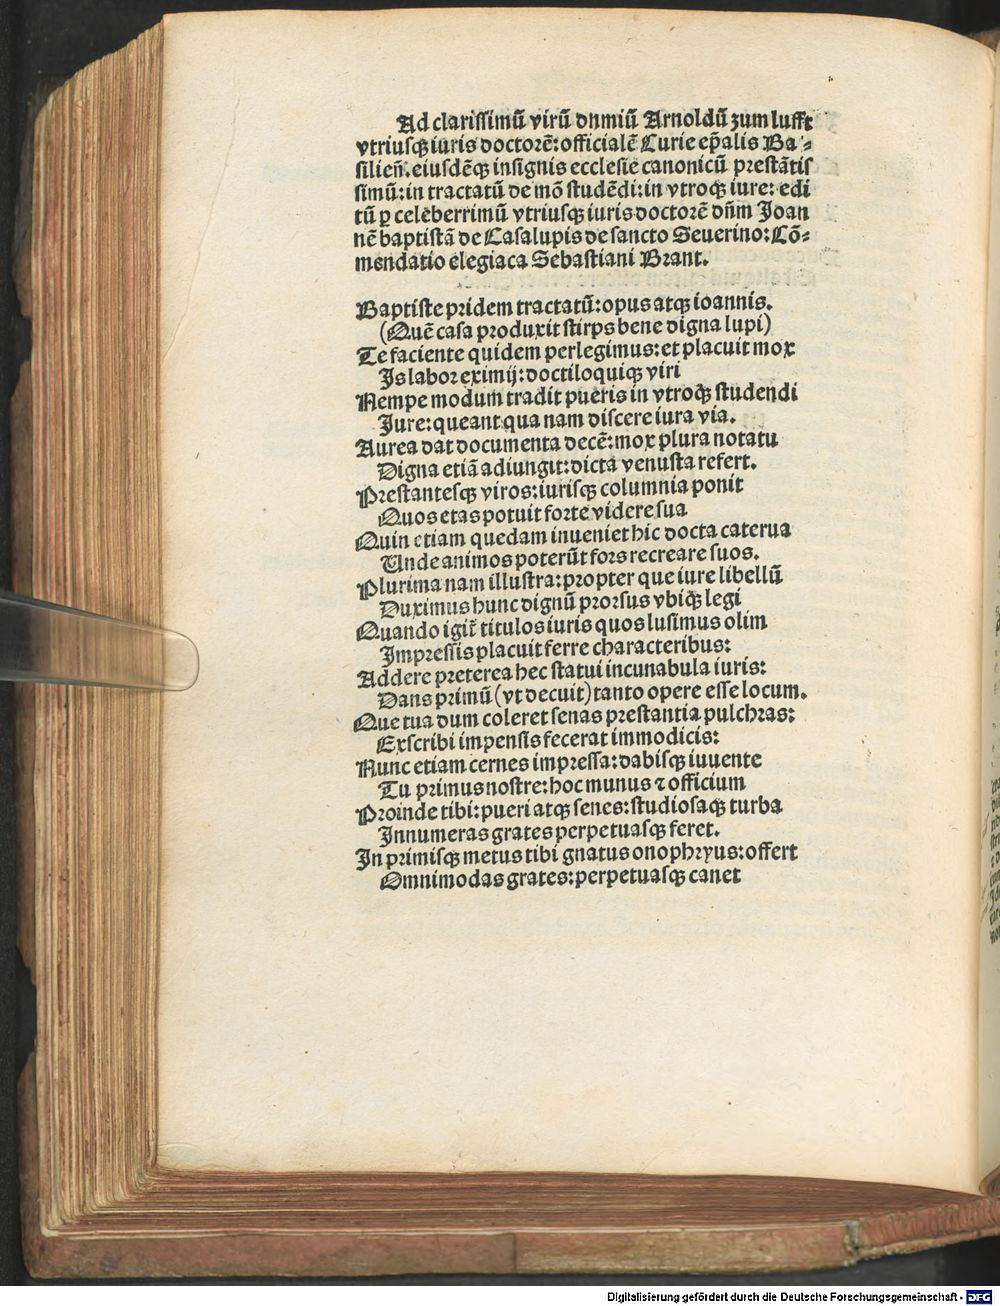 Ad clarissimū virū dnmiū Arnoldū zum lufft
vtriusqꝫ iuris doctorē: officialē Curie ep̄alis Ba⸗
silien̄. eiusdēqꝫ insignis ecclesie canonicū prestātis
simū: in tractatū de mō studēdi: in vtroqꝫ iure: edi
tū ꝑ celeberrimū vtriusqꝫ iuris doctorē dn̄m Joan
nē baptistā de Casalupis de sancto Seuerino: Cō⸗
mendatio elegiaca Sebastiani Brant.
Baptiste pridem tractatū: opus atqꝫ ioannis.
(Quē casa produxit stirps bene digna lupi)
Te faciente quidem perlegimus: et placuit mox
Is labor eximij: doctiloquiqꝫ viri
Nempe modum tradit pueris in vtroqꝫ studendi
Jure: queant qua nam discere iura via.
Aurea dat documenta decē: mox plura notatu
Digna etiā adiungit: dicta venusta refert.
Prestantesqꝫ viros: iurisqꝫ columnia ponit
Quos etas potuit forte videre sua
Quin etiam quedam inueniet hic docta caterua
Unde animos poterūt fors recreare suos.
Plurima nam illustra: propter que iure libellū
Duximus hunc dignū prorsus vbiqꝫ legi
Quando igit̄ titulos iuris quos lusimus olim
Impressis placuit ferre characteribus:
Addere preterea hec statui incunabula iuris:
Dans primū (vt decuit) tanto opere esse locum.
Que tua dum coleret senas prestantia pulchras:
Exscribi impensis fecerat immodicis:
Nunc etiam cernes impressa: dabisqꝫ iuuente
Tu primus nostre: hoc munus ⁊ officium
Proinde tibi: pueri atqꝫ senes: studiosaqꝫ turba
Innumeras grates perpetuasqꝫ feret.
In primisqꝫ metus tibi gnatus onophryus: offert
Omnimodas grates: perpetuasqꝫ canet
Digitalisierung gefördert durch die Deutsche Forschungsgemeinschaft - DFG